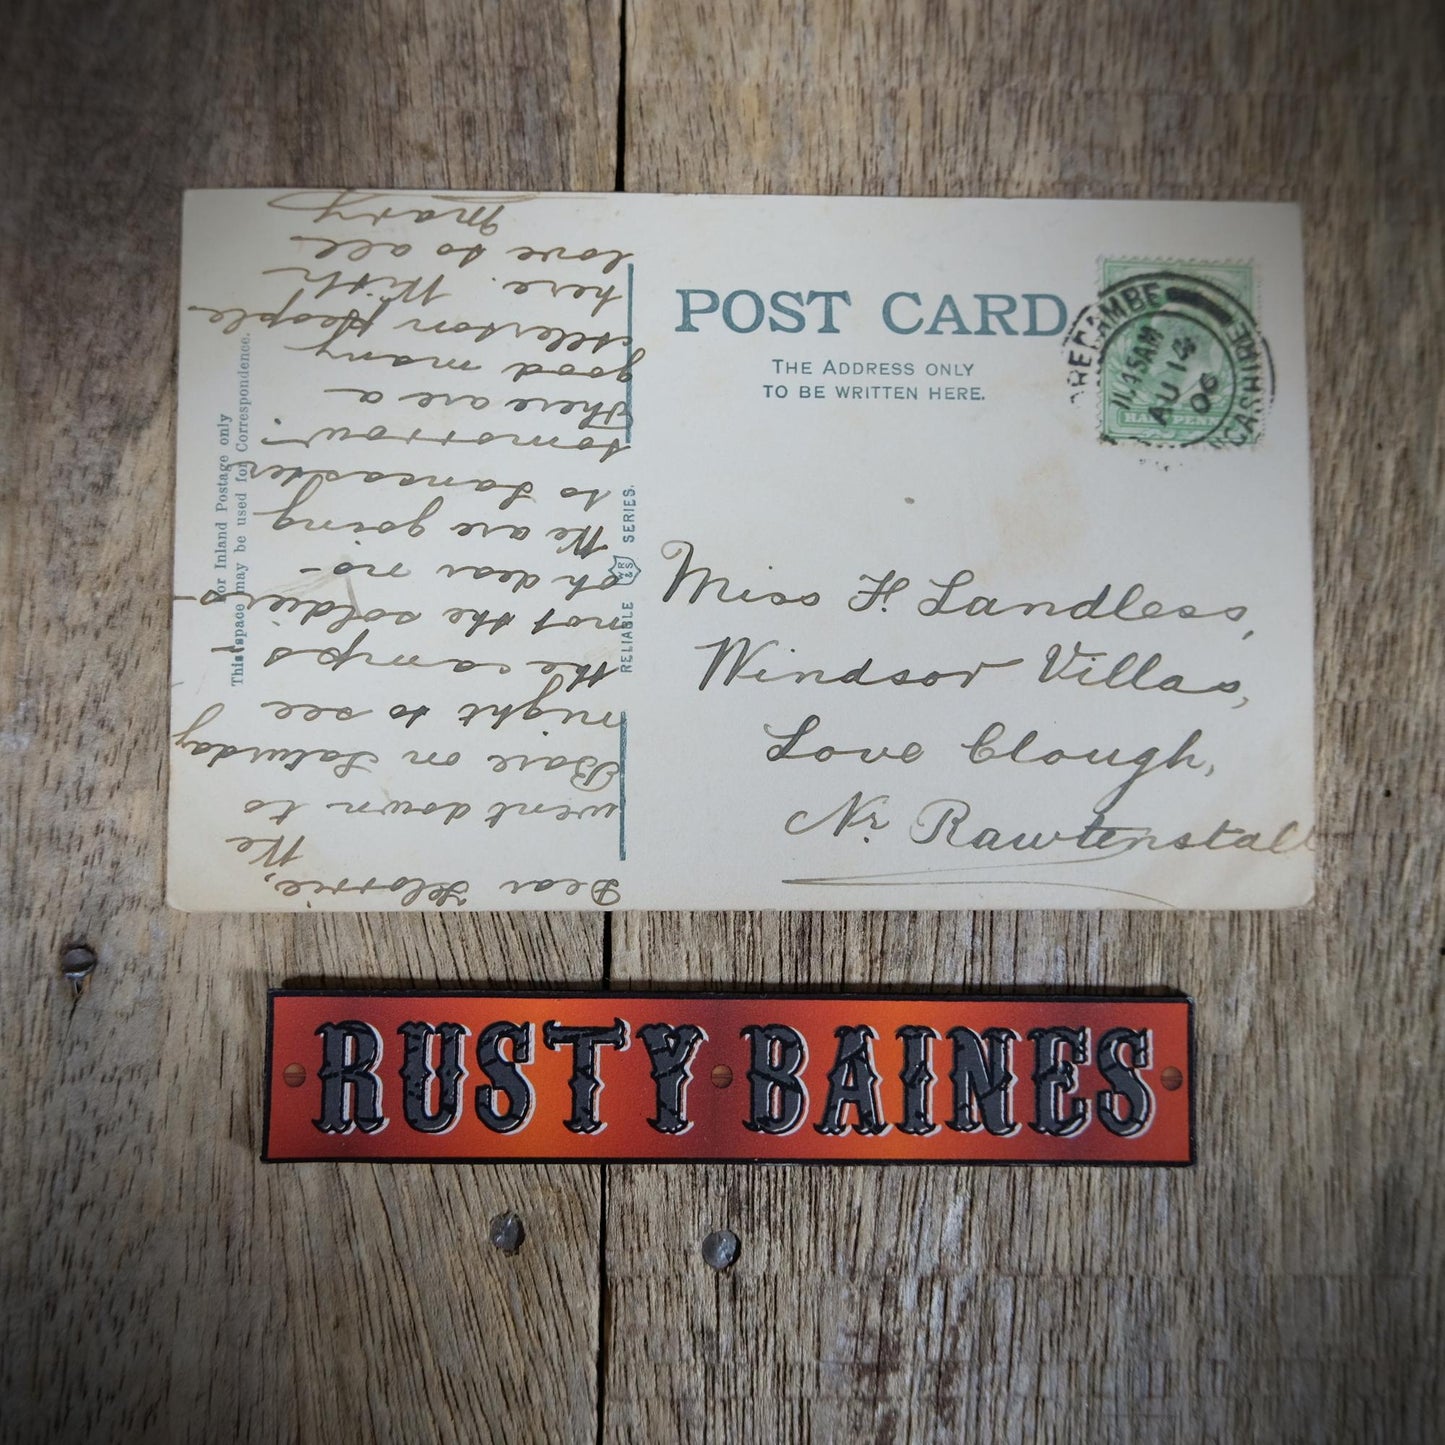 POST CARD
THE ADDRESS ONLY
TO BE WRITTEN HERE.
MORECAMBE
LANCASHIRE
11.45AM
AU 13
06
HALFPENNY
For Inland Postage only
This space may be used for Correspondence.
RELIABLE WR&S SERIES.
Dear Florrie,
We
went down to
Bare on Saturday
night to see
the camps
not the soldiers -
oh dear no -
We are going
to Lancaster
tomorrow.
There are a
good many
people
here. With
love to all
Mary
Miss F. Landless,
Windsor Villas,
Love Clough,
Nr Rawtenstall
RUSTY BAINES